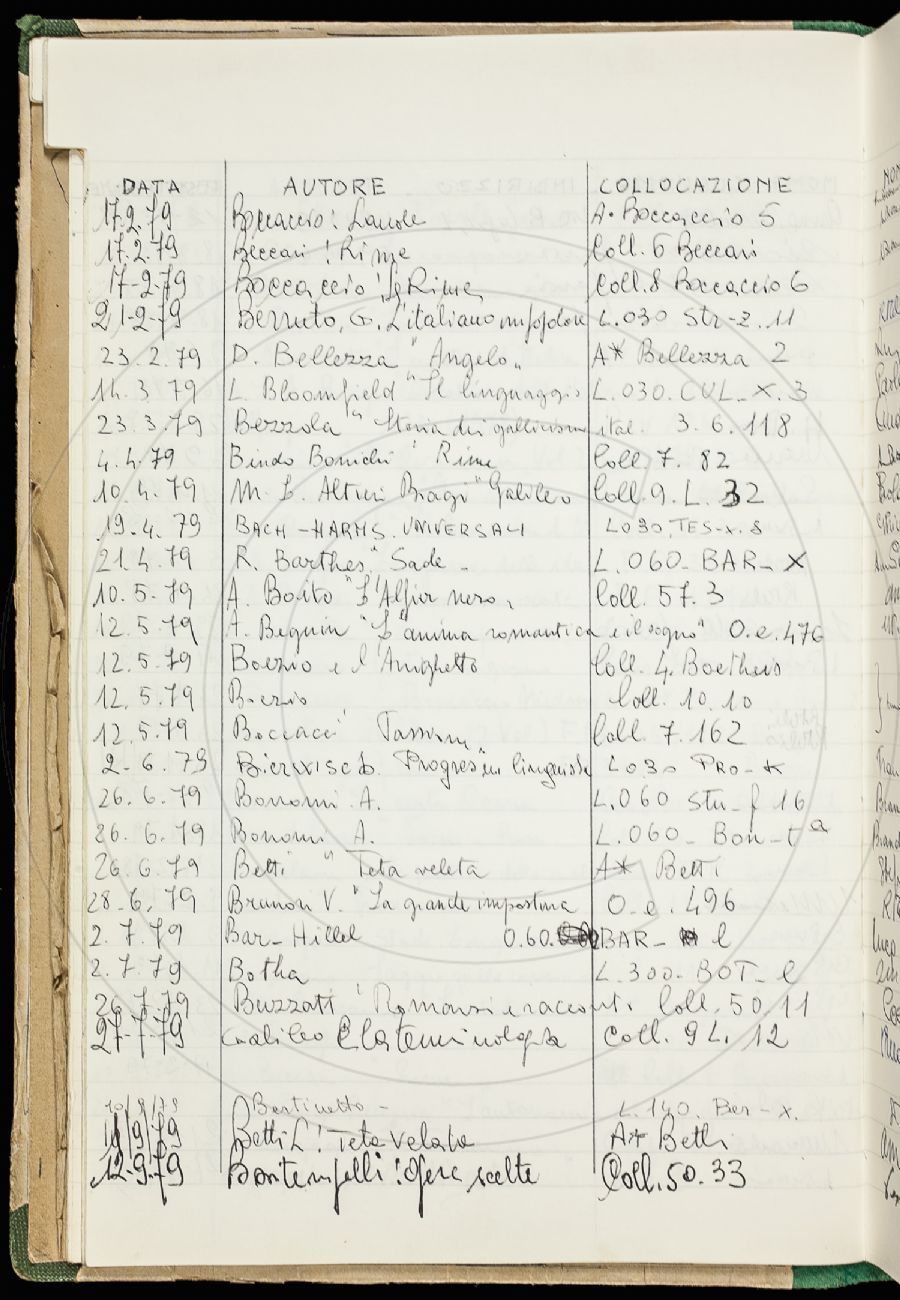 DATA AUTORE COLLOCAZIONE
17.2.79 Boccaccio: Laude A. Boccaccio 5
17.2.79 Beccari: Rime Coll. 6 Beccari
17-2-79 Boccaccio "Le Rime" Coll. 8 Boccaccio 6
21-2-79 Berruto, G. L'italiano impopolare L.030 Str-z. 11
23.2.79 D. Bellezza "Angelo" A* Bellezza 2
14.3 79 L. Bloomfield "Il linguaggio L.030. CUL-X. 3
23 3.79 Bezzola "Storia dei gallicismi ital. 3. 6. 118
4.4.79 Bindo Bonichi Rime Coll. 7. 82
10.4.79 M. L. Altieri Biagi "Galileo Coll. 9. L. 32
19.4.79 BACH-HARMS. UNIVERSALI L030.TES-x.8
21.4.79 R. Barthes "Sade L.060-BAR-X
10.5.79 A. Boito "L'Alfier nero" Coll. 57.3
12.5.79 A. Beguin "L'anima romantica e il sogno" O.e.476
12.5.79 Boezio e l'Arrighetto Coll. 4. Boethius
12.5.79 Boezio Coll. 10.10
12.5.79 Tassoni Coll. 7.162
2-6.79 Bierwisch. Progressi linguist. L030 PRO-X
26.6.79 Bonomi A. L.060 Stu-f 16
26.6.79 Bonomi A. L.060-Bon-t a
26.6.79 Betti "Teta veleta A* Betti
28-6.79 Brunori V. "La grande impostura O.e.496
2.7.79 Bar-Hillel 0.60. BAR- l
2.7.79 Botha L.300-BOT-l
26.7.79 Buzzati: Romanzi e racconti Coll. 50.11
27-7-79 Galileo e la terminologia Coll. 9 L. 12
10/9/79 Bertinetto- L.140. Ber-x.
11/9/79 Betti L: Teta veleta A* Betti
12-9.79 Bontempelli: Opere scelte Coll. 50.33